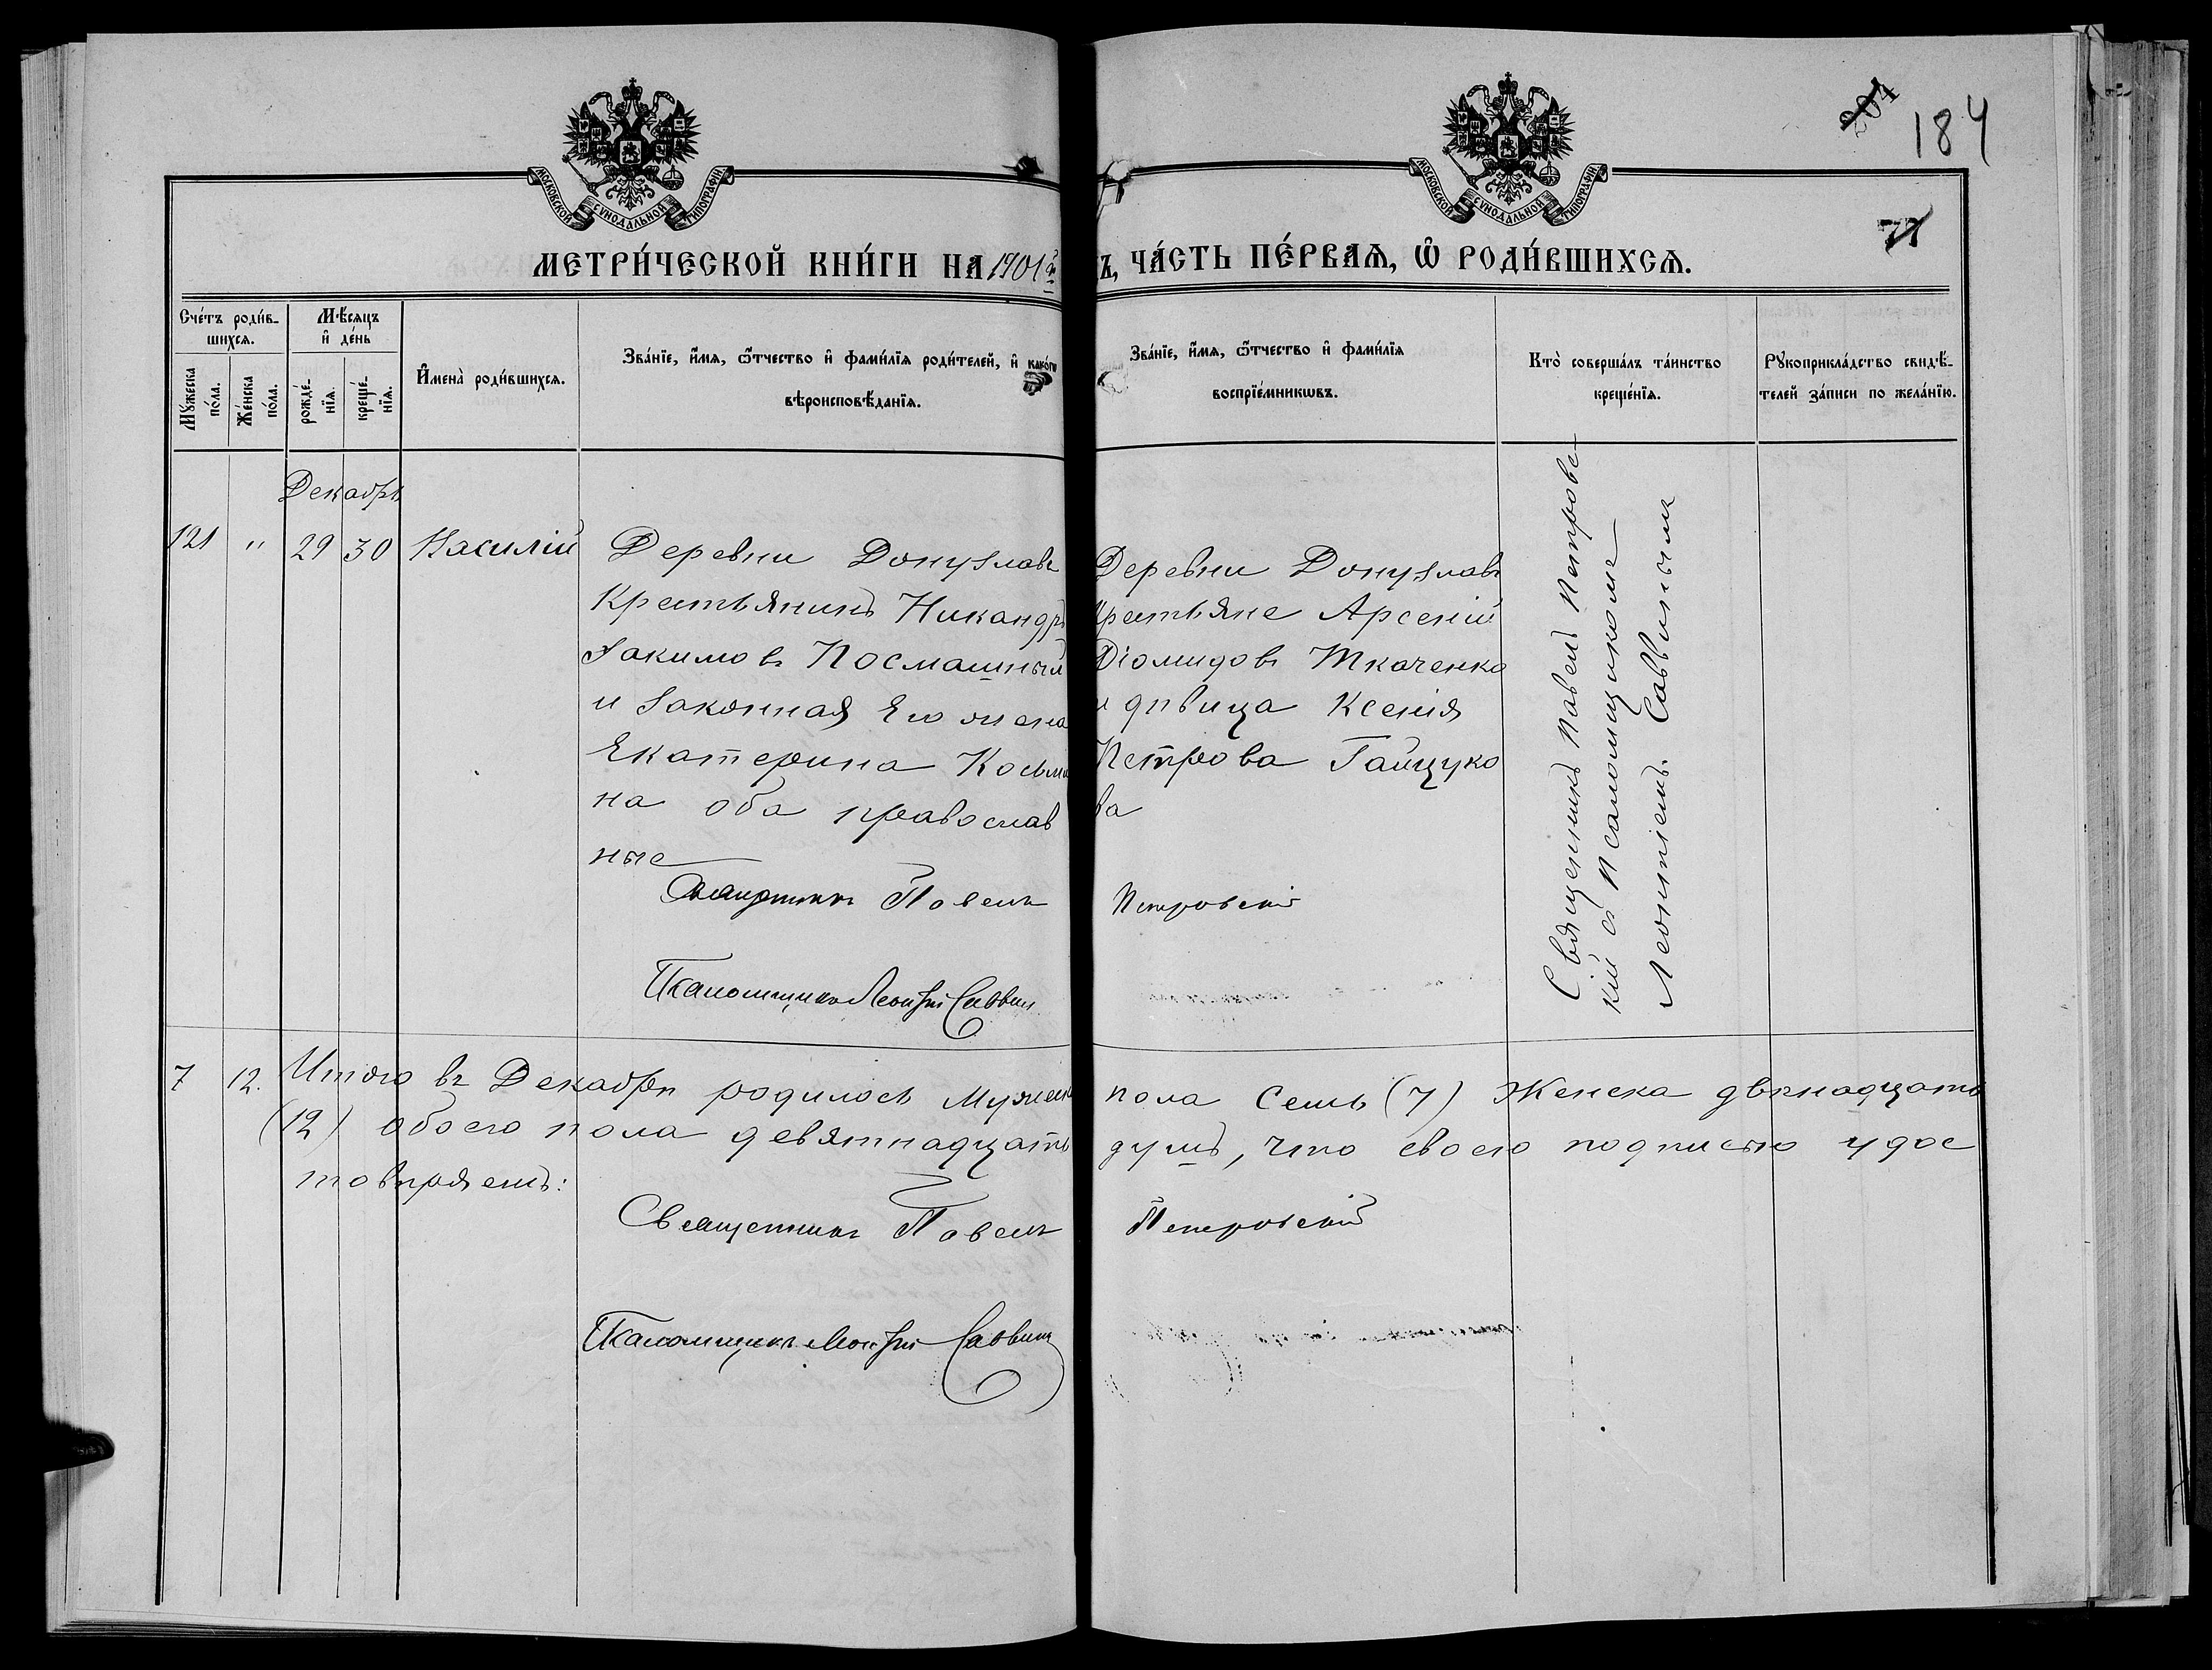 204
184
МОСКОВСКОЙ СѴНОДАЛЬНОЙ ТИПОГРАФІИ
МОСКОВСКОЙ СѴНОДАЛЬНОЙ ТИПОГРАФІИ
77
МЕТРИ́ЧЕСКОЙ КНИ́ГИ НА 1901 й
Ъ, ЧА́СТЬ ПЕ́РВАѦ, Ѡ҆ РОДИ́ВШИХСѦ.
Сче́тъ роди́в-
шихсѧ.
Му́жеска по́ла.
Же́нска по́ла.
Мѣ́сѧцъ
и҆ де́нь
рожде́-
нїѧ.
креще́-
нїѧ.
И҆мена̀ роди́вшихсѧ.
Зва́нїе, и҆́мѧ, ѻ҆́тчество и҆ фами́лїѧ роди́телей, и҆ како́гѡ
вѣроисповѣ́данїѧ.
Зва́нїе, и҆́мѧ, ѻ҆́тчество и҆ фами́лїѧ
воспрїе́мникѡвъ.
Кто̀ соверша́лъ та́инство
креще́нїѧ.
Рꙋкоприкла́дство свидѣ́-
телей за́писи по жела́нїю.
Декабрь
121 " 29 30 Василій
Деревни Донузлавъ
Крестьянинъ Никандръ
Іакимовъ Посмашный
и законная Его жена
Екатерина Косьми
на оба православ
ные
Священникъ Павелъ Петровскій
Псаломщикъ Леонтій Саввин
Деревни Донузлавъ
Крестьяне Арсеній
Діомидовъ Ткаченко
и дѣвица Ксенія
Петрова Гайцуко
ва
Священникъ Павелъ Петровс
кій съ Псаломщикомъ
Леонтіемъ Саввинымъ
7 12. Итого въ Декабрѣ родилось Мужеска пола Семь (7) Женска двѣнадцать
(12) обоего пола девятнадцать душъ, что своею подписью удос
товѣряемъ:
Священникъ Павелъ Петровскій
Псаломщикъ Леонтій Саввин